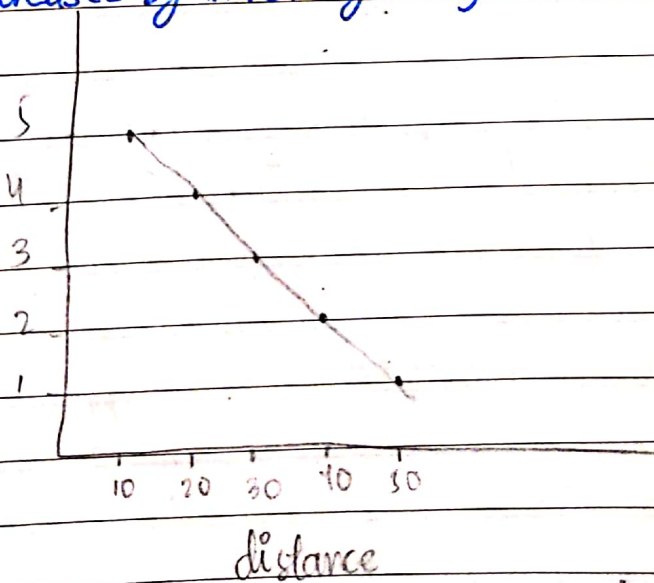 by
5
4
3
2
1
10 20 30 40 50
distance